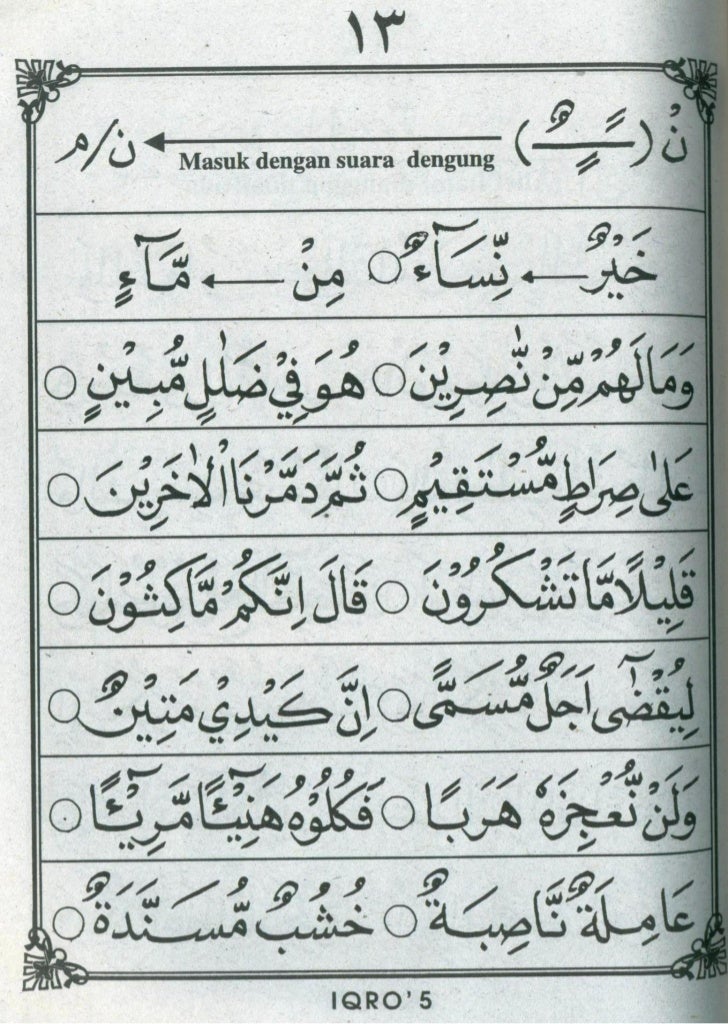 ١٣
نْ (ــًــٍــٌ) Masuk dengan suara dengung ن/م
خَيْرٌ نِّسَآءٌ ○ مِنْ مَّآءٍ
وَمَالَهُمْ مِّنْ نّٰصِرِيْنَ ○ هُوَ فِيْ ضَلٰلٍ مُّبِيْنٍ ○
عَلٰى صِرَاطٍ مُّسْتَقِيْمٍ ○ ثُمَّ دَمَّرْنَا الْاٰخَرِيْنَ ○
قَلِيْلًا مَّا تَشْكُرُوْنَ ○ قَالَ اِنَّكُمْ مَّاكِثُوْنَ ○
لِيُقْضٰٓى اَجَلٌ مُّسَمًّى ○ اِنَّ كَيْدِيْ مَتِيْنٌ ○
وَلَنْ نُّعْجِزَهٗ هَرَبًا ○ فَكُلُوْهُ هَنِيْٓئًا مَّرِيْٓئًا ○
عَامِلَةٌ نَّاصِبَةٌ ○ خُشُبٌ مُّسَنَّدَةٌ ○
IQRO' 5